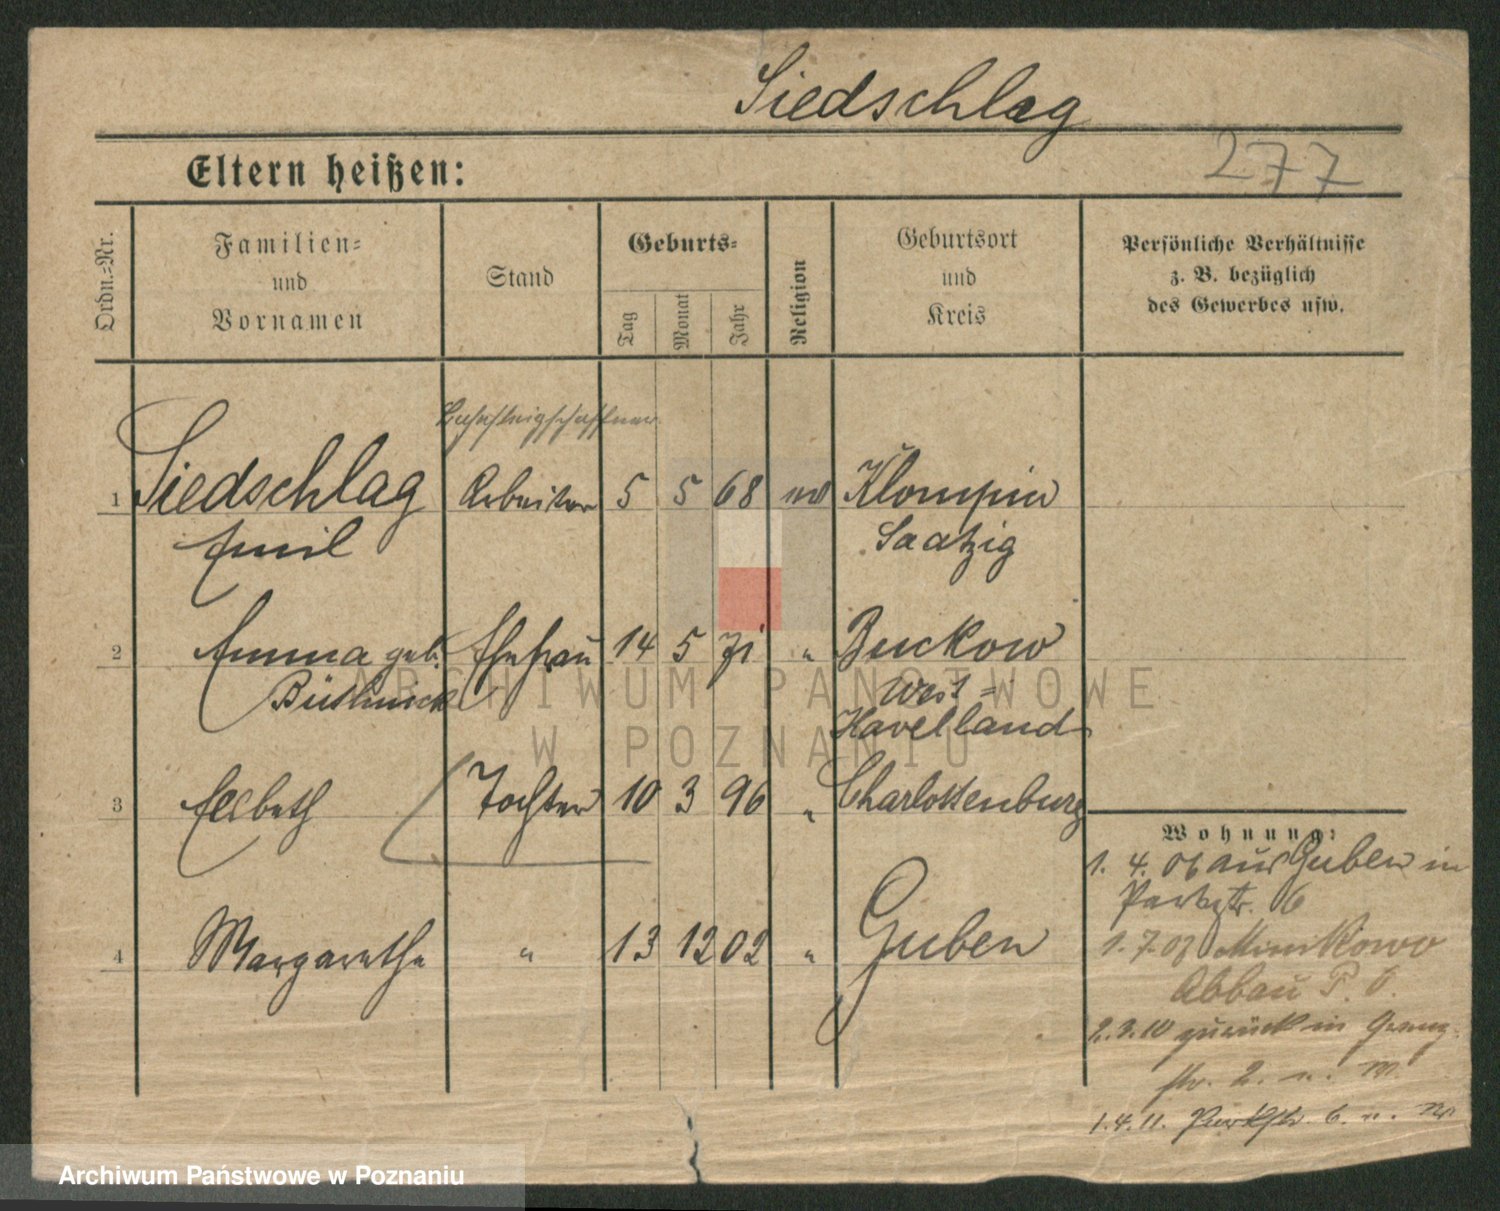 Siedschlag
277
Eltern heißen:
Ordn.=Nr.
Familien=
und
Vornamen
Stand
Geburts=
Tag
Monat
Jahr
Religion
Geburtsort
und
Kreis
Persönliche Verhältnisse
z. B. bezüglich
des Gewerbes usw.
Bahnsteigschaffner
1 Siedschlag Arbeiter 5 5 68 ev Klempin
Emil Saatzig
2 Emma geb. Ehefrau 14 5 71 " Buckow
West=
Havelland
3 Elsbeth Tochter 10 3 96 " Charlottenburg
Wohnung:
1. 4. 07 aus Guben in
Parkstr. 6
4 Margarethe " 13 12 02 " Guben
1. 7. 07
Abbau P. 6.
2. 3. 10 zurück in Grenz-
str. 2.
1. 4. 11. Parkstr. 6.
ARCHIWUM PAŃSTWOWE
W POZNANIU
Archiwum Państwowe w Poznaniu